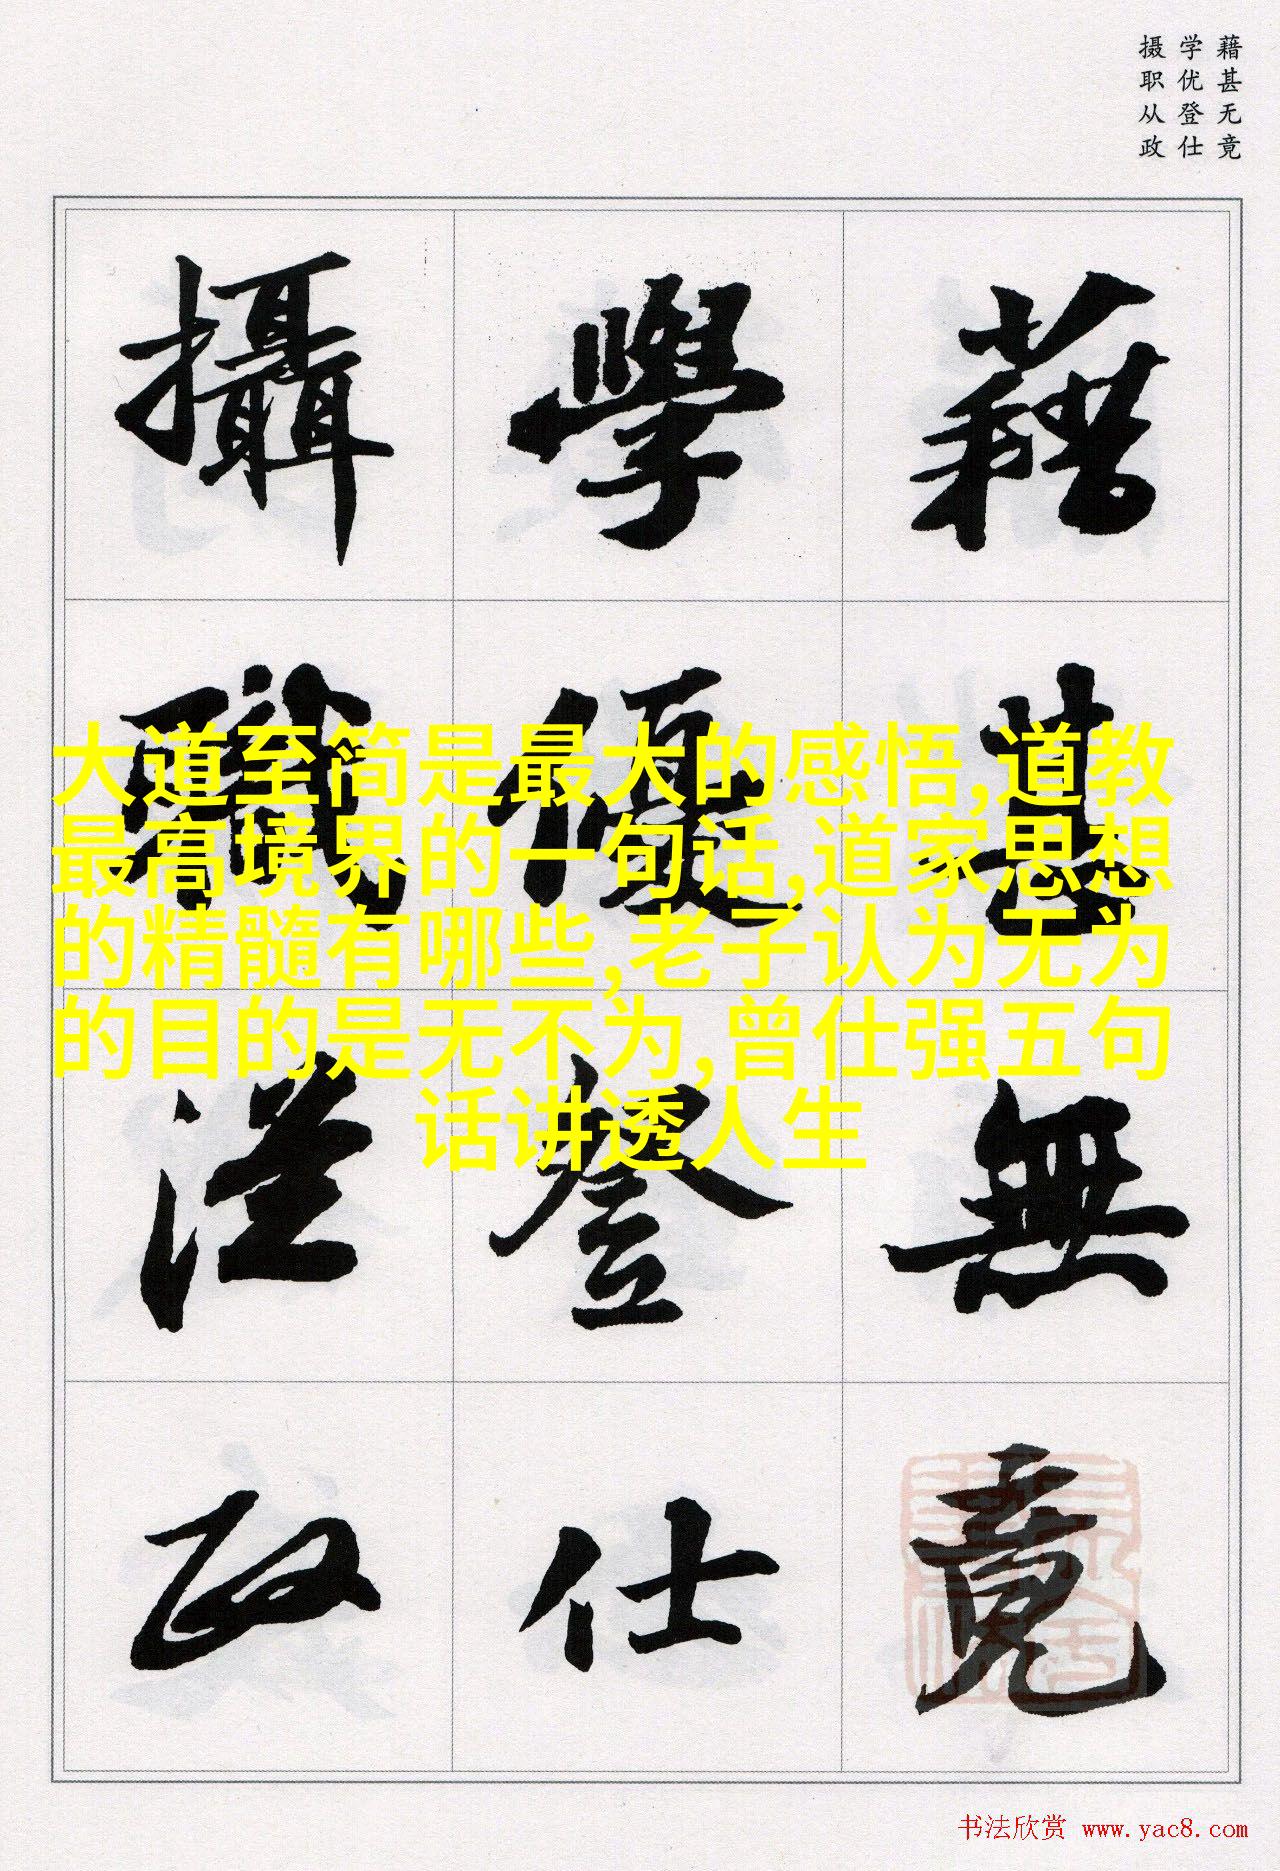 藉甚无竟
学优登仕
摄职从政
藉甚無竟
學優登仕
攝職從政
大道至简是最大的感悟,道教
最高境界的一句话,道家思想
的精髓有哪些,老子认为无为
的目的是无不为,曾仕强五句
话讲透人生
书法欣赏 www.yac8.com